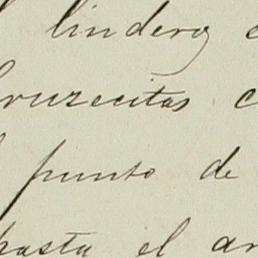 linderos
cruzecitas c
punto de
hasta el ar